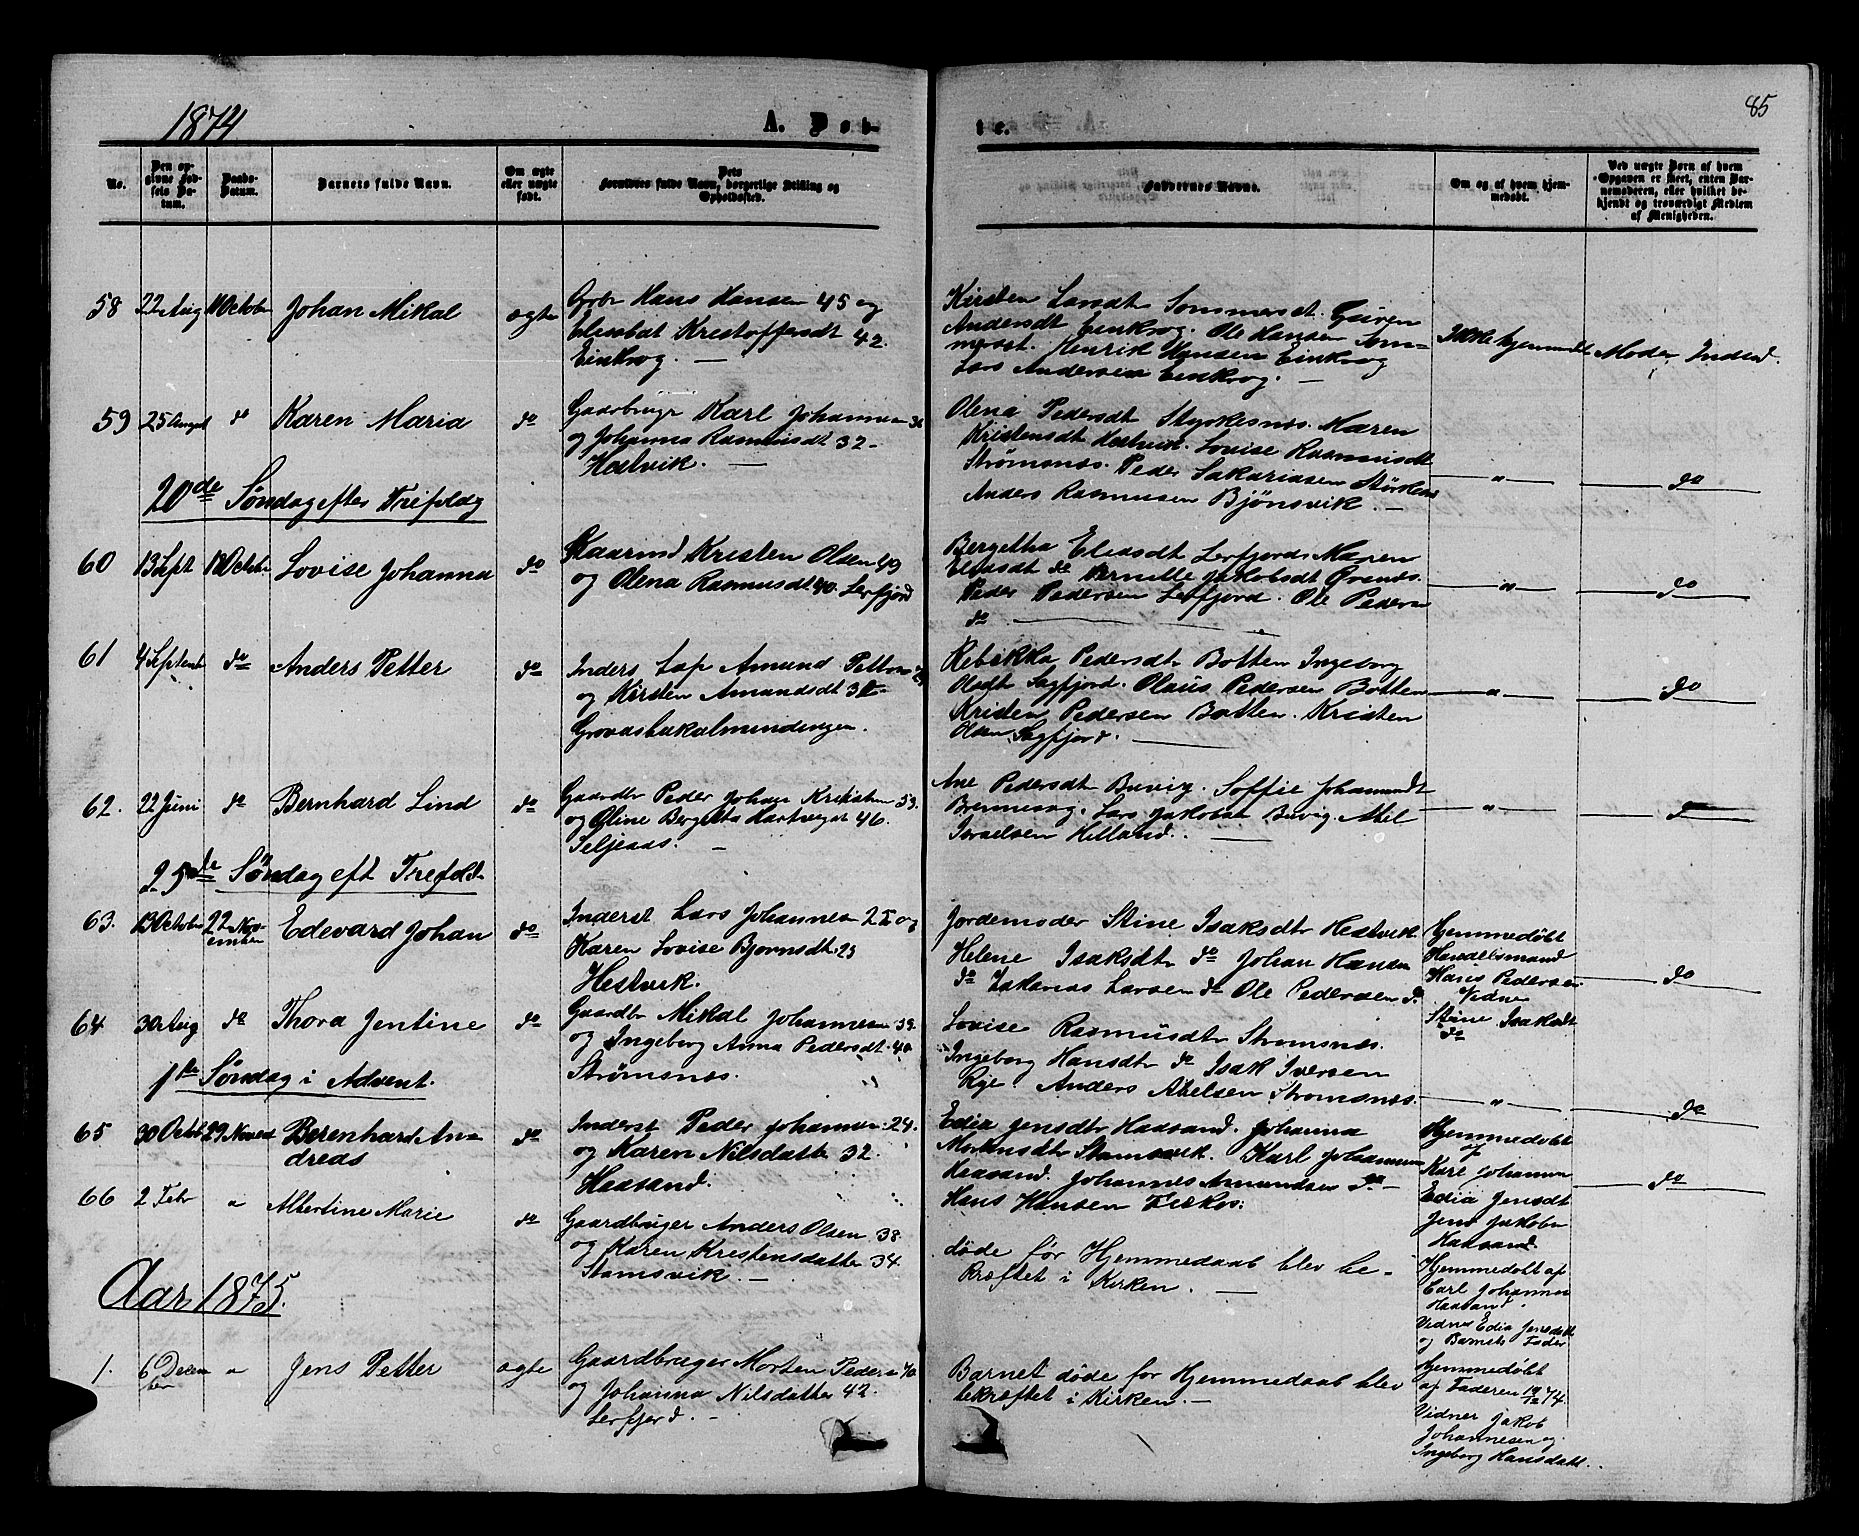 1874
A. Døb-
te.
85
No.
Den opgivne Fødsels Datum.
Daabs-Datum.
Barnets fulde Navn.
Om ægte eller uægte født.
Forældres fulde Navn, borgerlige Stilling og Opholdssted.
Faddernes Navne.
Om og af hvem hjemmedøbt.
Ved uægte Børn af hvem Opgaven er skeet, enten Barnemoderen, eller hvilket bekjendt og troværdigt Medlem af Menigheden.
58 22 Aug 11 Octobr Johan Mikal ægte
Grbr Hans Hansen 45 og
Elisabat Kristoffersdt 42.
Einkrog. —
Kirsten Larsdt Sommerset. Guren
Andersdt Einkrog. Ole Hansen Som-
merset. Henrik Hansen Einkrog
Lars Andersen Einkrog. —
Ikke hjemmedt
Moder Indsd.
59 25 August do Karen Maria do
Gaardbrugr Karl Johannesen 36
og Johanna Rasmusdt 32 -
Hestvik. —
Olena Pedersdt Styrkesnes. Maren
Kristensdt Hestvik. Lovise Rasmusdt
Strømsnes. Peder Sakariasen Størkesnes
Anders Rasmusen Bjönsvik. —
— " — — do —
20de Söndag efter Trefoldg
60 13 Sept 18 Octobr Lovise Johanna do
Gaarmd Kristen Olsen 49
og Olena Rasmusdt 40. Lerfjord
Bergetha Eliasdt Lerfjord. Maren
Eliasdt do Pernille Jakobsdt Ørenes.
Peder Pedersen Lerfjord. Ole Pedersen
do —
— " — — do —
61 4 Septembr do Anders Petter do
Inders Lap Amund Petterse
og Kirsten Amundsdt
Grovasbakalmindingen.
Rebekka Pedersdt Botten Ingeborg
Olsdt Sagfjord. Olaus Pedersen Botten
Kristen Pedersen Botten. Kristen
Olsen Sagfjord. —
— " — — do —
62. 22 Juni do Bernhard Lind do
Gaardbr Peder Johan Kristian 53.
og Oline Bergitta Hartviger 46.
Seljeaas. —
Ane Pedersdt Buvig. Soffie Johannesdt
Brennesvig. Lars Jakobsen Buvig. Abel
Israelsen Helland. —
— " — — do —
25de Söndag eft Trefoldt
63. 13 Octobr 22 Nov-
ember Edevard Johan do
Inderst Lars Johannesen og
Karen Lovise Bjornsdt 25
Hestvik.
Jordemoder Stine Isaksdtr Hestvik
Helene Isaksdtr do Johan Hansen
do Zakarias Larsen do Ole Pedersen do
Hjemmedöbt
Handelsmand
Hans Pedersen
Vidne
Stine Isaksdt
do
— do —
64 30 Aug do Thora Jentine do
Gaardbr Mikal Johannesen 39.
og Ingeborg Anna Pedersdt. 40
Strømsnes.
Lovise Rasmusdtr Stromsnes.
Ingeborg Hansdtr do Isak Iversen
Rye. Anders Abelsen Stromsnes.
— " — — do —
1ste Söndag i Advent.
65 30 Octobr 29 Novembr Berenhard An-
dreas do
Inderst Peder Johannesen 24.
og Karen Nilsdatter 32.
Haasand.
Edia Jensdtr Haasand. Johanna
Markusdtr Stamsvik. Karl Johannesen
Haasand. Johannes Amundsen do —
Hans Hansen Feskos.
Hjemmedöbt
af
Karl Johannesen
Edia Jensdt
Jens Jakobsen
Haasand
— do —
66 2 Febr " Albertine Marie do
Gaardbruger Anders Olsen 38
og Karen Kristensdatter 34.
Stamsvik. —
döde för Hjemmedaab blev be-
kræftet i Kirken. —
Hjemmedöbt af
Carl Johannes
Haasand.
Vidner Edia Jensdatt
og Barnets Fader
Aar 1875.
1. 6 Decem
ber " Jens Petter ægte
Gaardbruger Morten Pedersen 40
og Johanna Nilsdatter 42.
Lerfjord. —
Barnet döde for Hjemmedaab blev
bekræftet i Kirken. —
Hjemmedöbt
af Faderen 19/12 74.
Vidner Jakob
Johannesen og
Ingeborg Hansdatt.